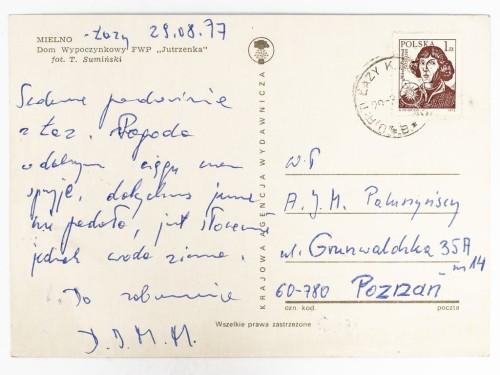 MIELNO
Łazy 29.08.77
Dom Wypoczynkowy FWP „Jutrzenka"
fot. T. Sumiński
POLSKA 1 ZŁ
ŁAZY K.
Serdeczne pozdrowienia
z Łaz. Pogoda
w dalszym ciągu nam
sprzyja, dotychczas jeszcze
nie padało, jest słonecznie
jednak woda zimna.
Do zobaczenia
KRAJOWA AGENCJA WYDAWNICZA
W.P.
A. J. M. Paluszyńscy
ul. Grunwaldzka 35A
m 14
60-780 Poznań
ozn. kod. poczta
Wszelkie prawa zastrzeżone